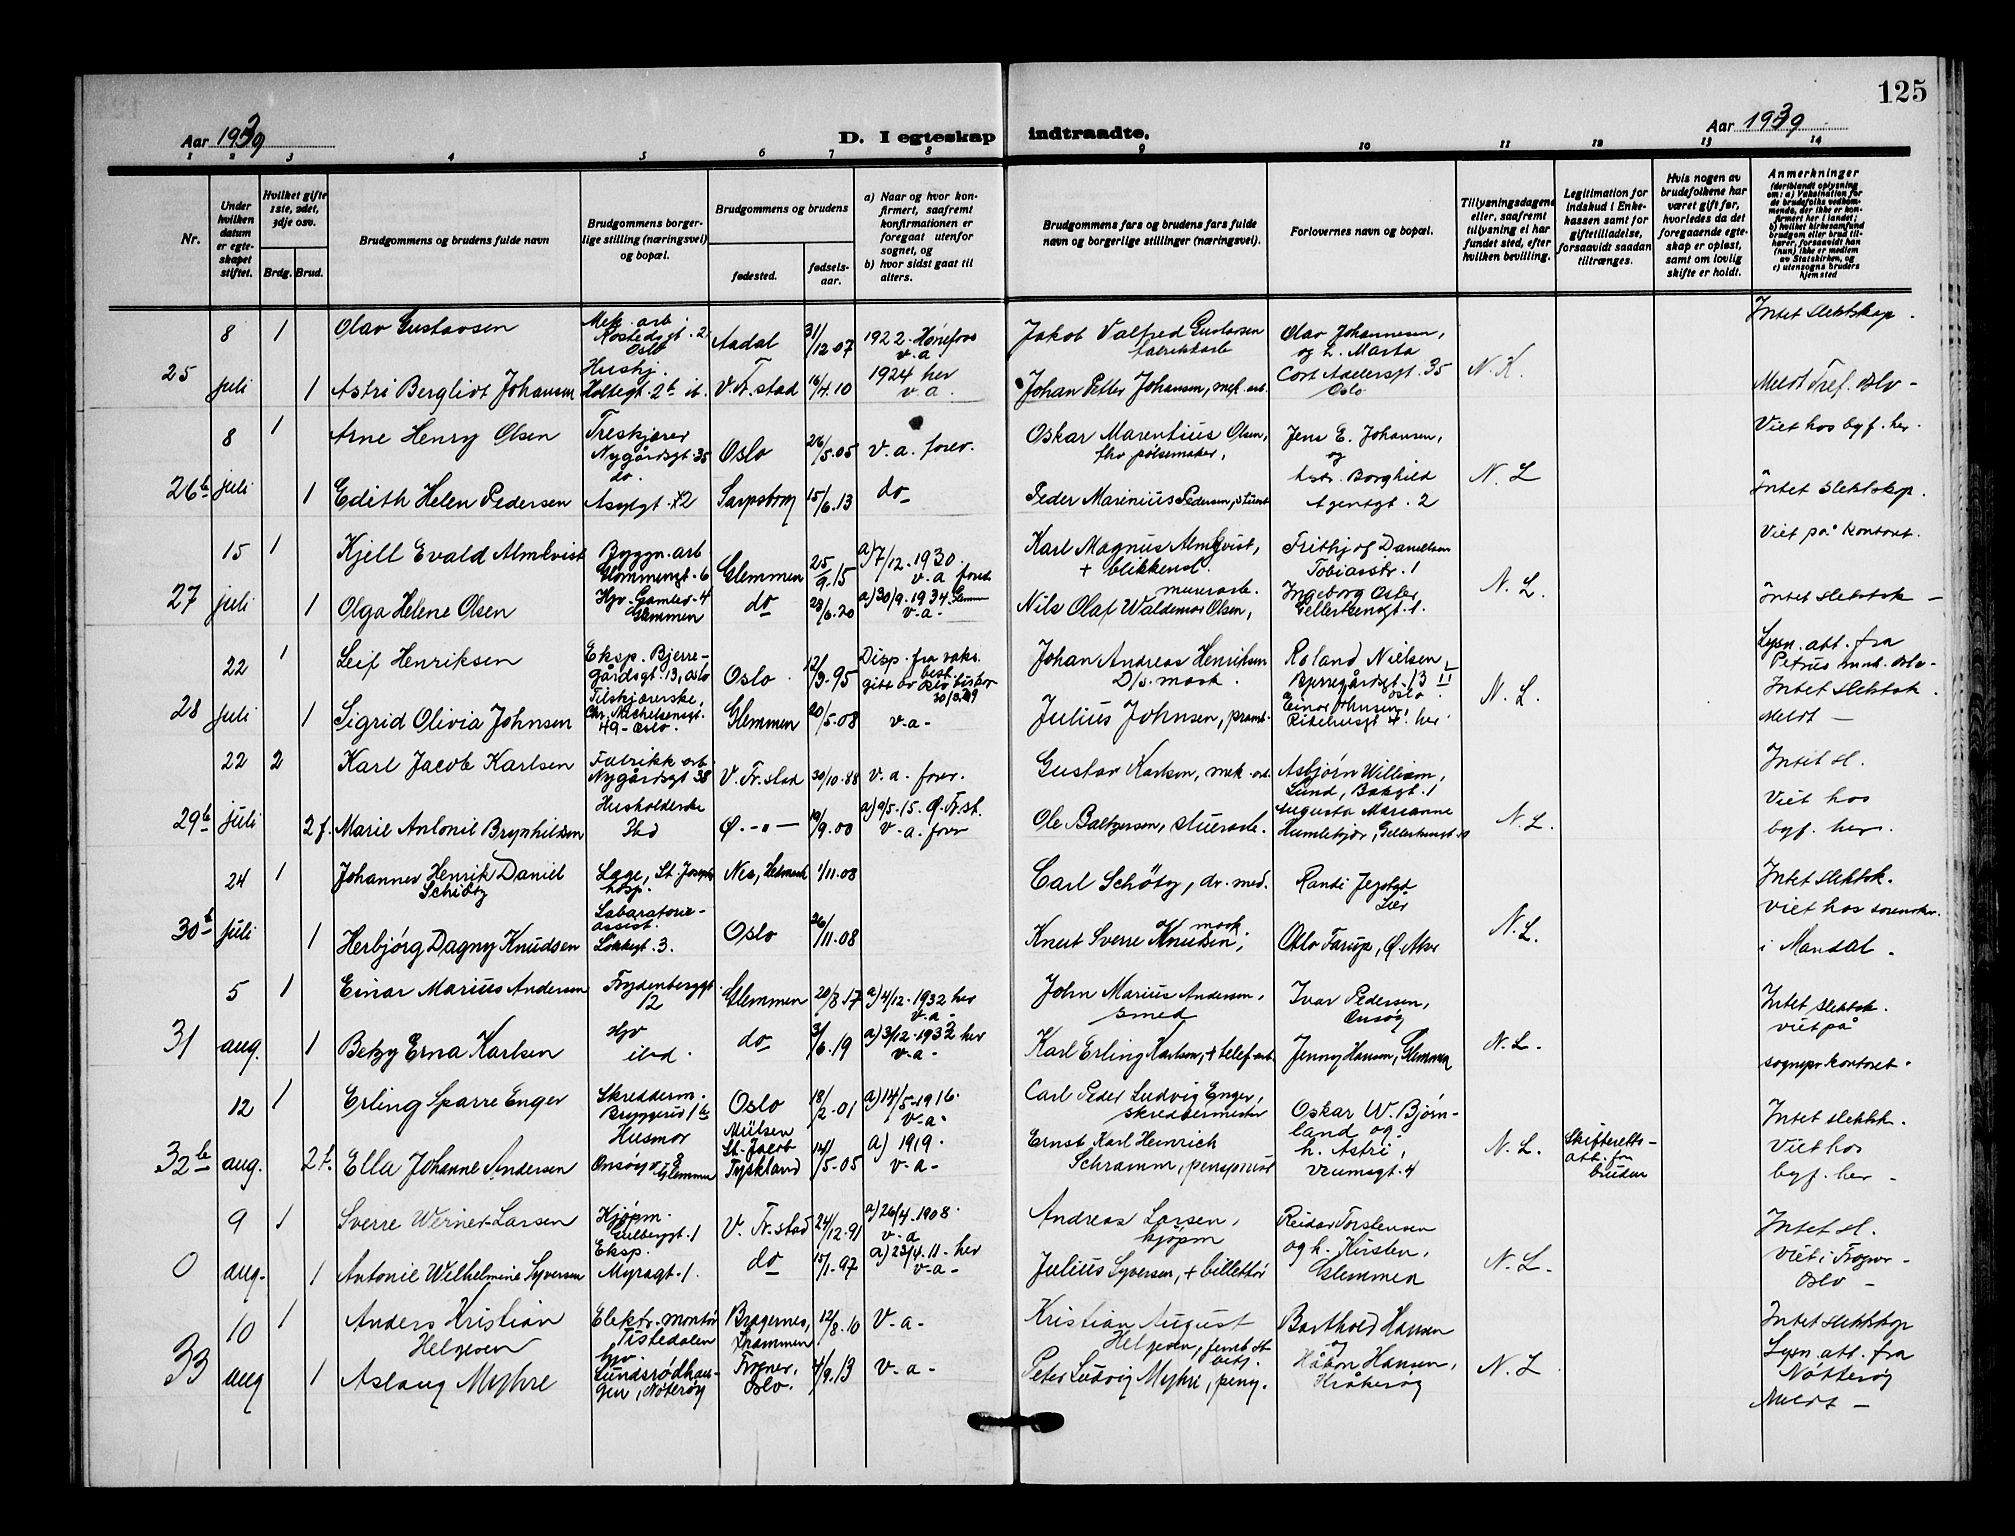 125
Aar 1939
D. I egteskap indtraadte.
Aar 1939
1 2 3 4 5 6 7 8 9 10 11 12 13 14
Nr.
Under hvilken datum er egteskapet stiftet.
Hvilket gifte 1ste, 2det, 3dje osv.
Brdg. Brud.
Brudgommens og brudens fulde navn
Brudgommens borgerlige stilling (næringsvei) og bopæl.
Brudgommens og brudens
fødested.
fødselsaar.
a) Naar og hvor konfirmert, saafremt konfirmationen er foregaat utenfor sognet, og
b) hvor sidst gaat til alters.
Brudgommens fars og brudens fars fulde navn og borgerlige stillinger (næringsvei).
Forlovernes navn og bopæl.
Tillysningsdagene eller, saafremt tillysning ei har fundet sted, efter hvilken bevilling.
Legitimation for indskud i Enkekassen samt for giftetilladelse, forsaavidt saadan tiltrænges.
Hvis nogen av brudefolkene har været gift før, hvorledes da det foregaaende egteskap er opløst, samt om lovlig skifte er holdt.
Anmerkninger
(deriblandt oplysning om: a) Vaksination for de brudefolks vedkommende, der ikke er konfirmert her i landet; b) hvilket kirkesamfund brudgom eller brud tilhører, forsaavidt han (hun) ikke er medlem av Statskirken, og c) utensogns bruders hjemsted
25
8 juli
1 Olav Gustavsen
Mek. arb. Rostedsgt. 2 Oslo
Aadal 31/12 07
1922 Hønefoss v.a.
Jakob Valfred Gustavsen fabrikkarb
Olav Johannesen, og h. Marta
Cort Adelersgt. 35 Oslo
N. K.
Intet slektskap.
1 Astri Bergliot Johansen
Hushj. Holtegt. 2b ib.
V. Fr.stad 16/4.10
1924 her v.a.
Johan Petter Johansen, mek. arb.
Meldt Tref. Oslo -
26b
8 juli
1 Arne Henry Olsen
Treskjærer Nygårdsgt. 35
Oslo 26/5.05
v. a. forev.
Oskar Marentius Olsen, fhv pølsemaker,
Jens E. Johansen, og
Astr. Borghild
Agentgt. 2
N. L
Viet hos byf. her.
1 Edith Helen Pedersen
do. Asylgt. 12
Sarpsborg 15/6.13
do
Peder Marinius Pedersen, stuert
Intet slektskap.
27
15 juli
1 Kjell Evald Almkvist
Byggn. arb Glommengt. 6
Glemmen 25/9.15
a) 7/12.1930. v.a forev
Karl Magnus Almqvist, + blikkensl.
Frithjof Danielsen Tobiasstr. 1
Ingeborg Osler, Gellertsengt. 1.
N. L.
Viet på kontoret.
1 Olga Helene Olsen
Hjv. Gamlev. 4 Glemmen
do 28/6.20
a) 30/9.1934. Glemmen v-a-
Nils Olaf Waldemar Olsen, murerarb.
Intet slektsk -
28
22 juli
1 Leif Henriksen
Eksp. Bjerregårdsgt. 13, Oslo
Oslo 12/3.95
Disp. fra vaks. best. gitt av Oslo biskop 30/3.39
Johan Andreas Henriksen D/s. mask.
Roland Nielsen, Bjerregårdsgt. 13 II Oslo.
Einar Johnsen, Ridehusgt 4. her.
N. L.
Lysn. att. fra Petrus mnh. Oslo -
1 Sigrid Olivia Johnsen
Tilskjærerske, Chr. Michelsensgt. 49 - Oslo.
Glemmen 20/5.08
v-a-
Julius Johnsen, pramk.
Intet slektsk.
Meldt -
29b
22 juli
2 Karl Jacob Karlsen
Fabrikk arb Nygårdsgt 38
V. Fr.stad 30/10.88
v. a. forev.
Gustav Karlsen, mek. arb.
Asbjørn William Lund, Bakgt. 1
Augusta Marianne Humlekjær, Gellertsengt.
N. L.
Intet sl.
Viet hos byf. her.
2 f. Marie Antonie Brynhildsen
Husholderske Ibid
Ø. -"- 19/9.00
a) 9/5-15. Ø. Fr.st. v-a. forev
Ole Baltzersen, stuerarb.
30b
24 juli
1 Johannes Henrik Daniel Schiøtz
Læge, St. Josephs hosp.
Nes, Hedmark 1/11.08
Carl Schiøtz, dr. med.
Randi Jegstgt Lier
N. L.
Intet slektsk.
viet hos sorenskr. i Mandal.
1 Herbjørg Dagny Knudsen
Laboratorieassist. Løkkegt. 3.
Oslo 26/11-08
Knut Sverre Knudsen, off mask.
Otto Tarup, Ø. Aker
31
5 aug.
1 Einar Marius Andersen
Frydenberggt. 12
Glemmen 20/8.17
a) 4/12.1932 her v-a-
John Marius Andersen, smed
Ivar Pedersen, Onsøy
N. L.
Intet slektsk.
viet på sognepr. kontoret.
1 Betzy Erna Karlsen
Hjv ibd.
do 3/6.19
a) 3/12.1933 her v-a-
Karl Erling Karlsen, + telef. arb
Jenny Hansen, Glemmen
32b
12 aug.
1 Erling Sparre Enger
Skredderm. Bryggeriv 1b
Oslo 18/2.01
a) 14/5-1916. v-a-
Carl Peder Ludvig Enger, skreddermester
Oskar W. Bjørnland og h. Astri, Vrumsgt. 4
N. L.
Skifteretts- att. for bruden
Intet slektsk.
Viet hos byf. her -
2 f. Ella Johanne Andersen
Husmor Onsøyv. 8 Glemmen
Mülsen St. Jacob Tyskland 14/5-05
a) 1919. v-a-
Ernst Karl Heinrich Schramm, pensjonist
0
9 aug.
1 Sverre Werner-Larsen
Kjøpm. Gulbergt. 1
V. Fr.stad 24/12.91
a) 26/4.1908. v-a
Andreas Larsen, kjøpm
Reidar Torstensen og h. Kirsten, Glemmen
N. L.
Intet sl.
Viet i Frogner - Oslo -
1 Antonie Wilhelmine Syversen
Eksp. Myragt. 1.
do 15/1.97
a) 23/4.11. her v-a-
Julius Syversen, + billettør
33
10 aug
1 Anders Kristian Helgesen
Elektr. montør Tistedalen
Bragernes, Drammen 12/8.10
v-a-
Kristian August Helgesen, jernb. st. betj.
Barthold Hansen og Håkon Hansen, Kråkerøy
N. L
Intet slektskap
Lysn. att. fra Nøtterøy
1 Aslaug Myhre
hjv. Sundsrødhaugen, Nøterøy
Frogner, Oslo. 4/9.13
v-a-
Peter Ludvig Myhre, peng.
Meldt -